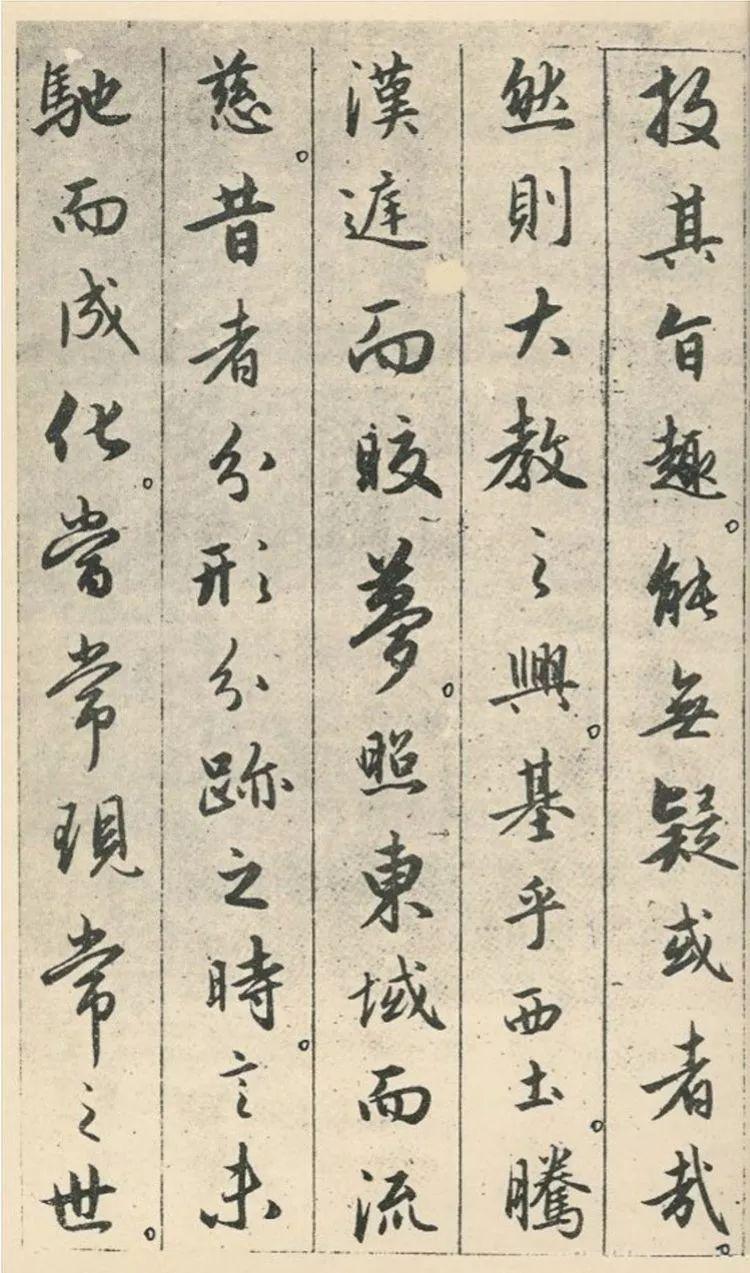 投其旨趣。能無疑或者哉。
然則大教之興。基乎西土。騰
漢遅而晈夢。照東域而流
慈。昔者分形分跡之時。言未
馳而成化。當常現常之世。